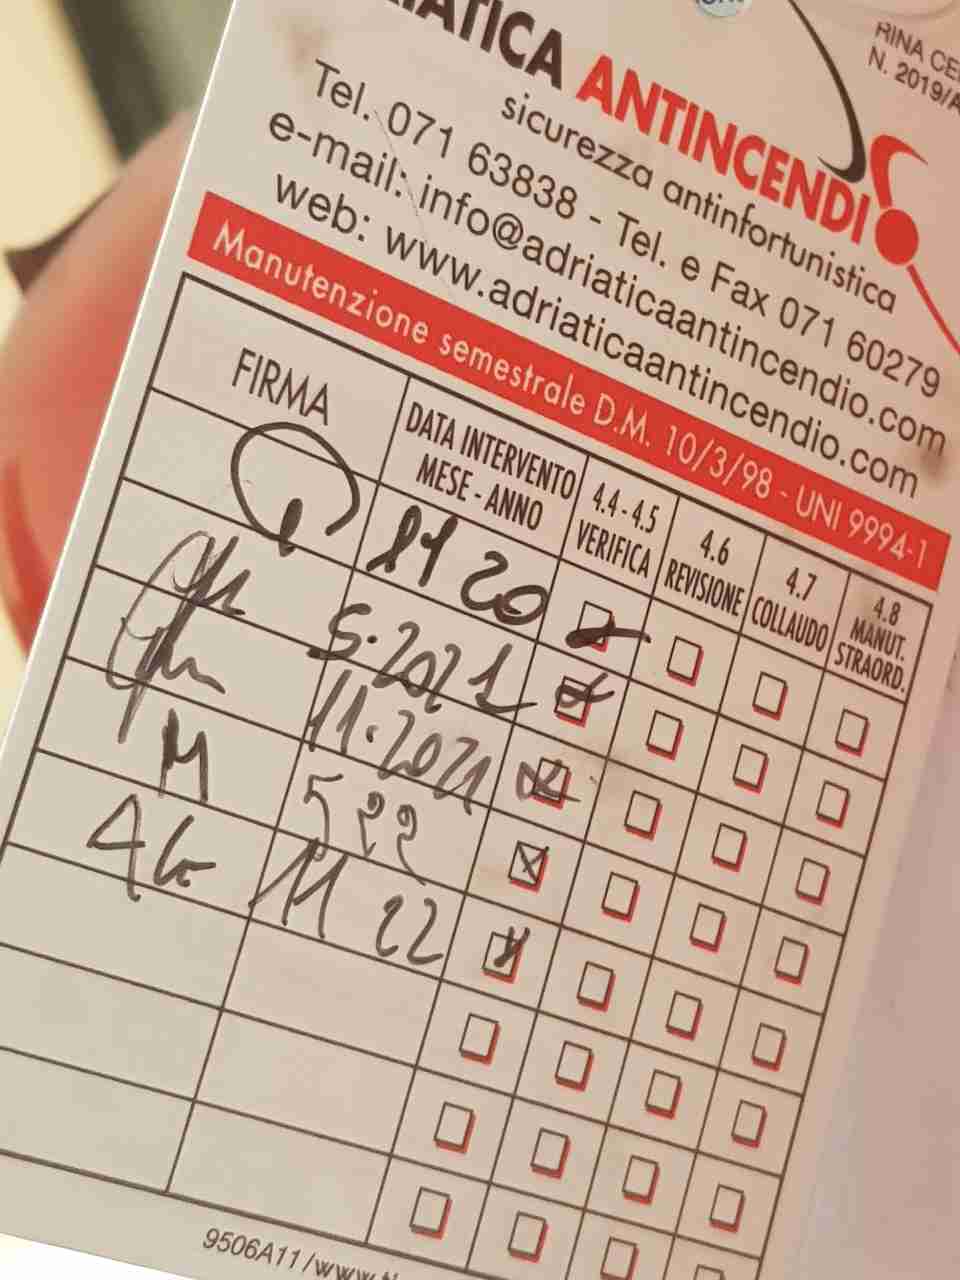 ANTINCENDI
sicurezza antinfortunistica
RINA
N. 2019/A
Tel. 071 63838 - Tel. e Fax 071 60279
e-mail: info@adriaticaantincendio.com
web: www.adriaticaantincendio.com
Manutenzione semestrale D.M. 10/3/98 - UNI 9994-1
FIRMA DATA INTERVENTO MESE - ANNO 4.4 - 4.5 VERIFICA 4.6 REVISIONE 4.7 COLLAUDO 4.8 MANUT. STRAORD.
11 20
5.2021
11.2021
5 22
11 22
9506A11/www.